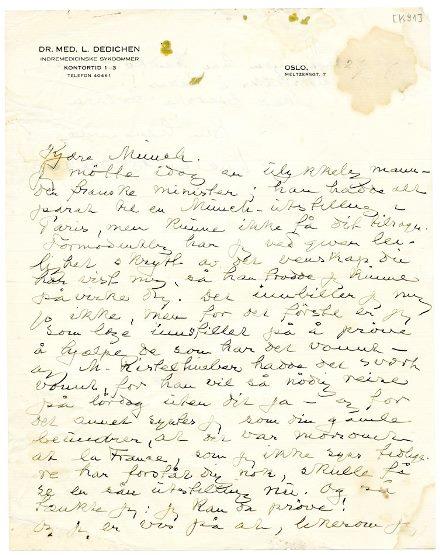 [K 91]
DR. MED. L. DEDICHEN
INDREMEDICINSKE SYKDOMMER
KONTORTID 1-3
TELEFON 40461
OSLO,
MELTZERSGT. 7
Kjære Munch.
Jeg møtte idag en ulykkelig mann -
den franske minister; han hadde alt
parat til en Munch-utstilling i
Paris, men kunne ikke få dit tilsagn.
Formodentlig har jeg ved given lei-
lighet skrytt av det venskap du
har vist mig, så han trodde jeg kunne
påvirke dig. Det innbiller jeg mig
jo ikke, men for det første er jeg
som læge innstillet på å prøve
å hjelpe de som har det vondt -
og M. hadde det svært
vondt, for han vil så nødig reise
på lørdag uten dit ja - og for
det annet synes jeg, som din gamle
beundrer, at det var morsomt
at la France, som jeg ikke synes tidlige-
re har forstått dig nok, skulle få
se en sån utstilling nu. Og så
tenkte jeg: jeg kan da prøve!
Og jeg er viss på at, likesom jeg,